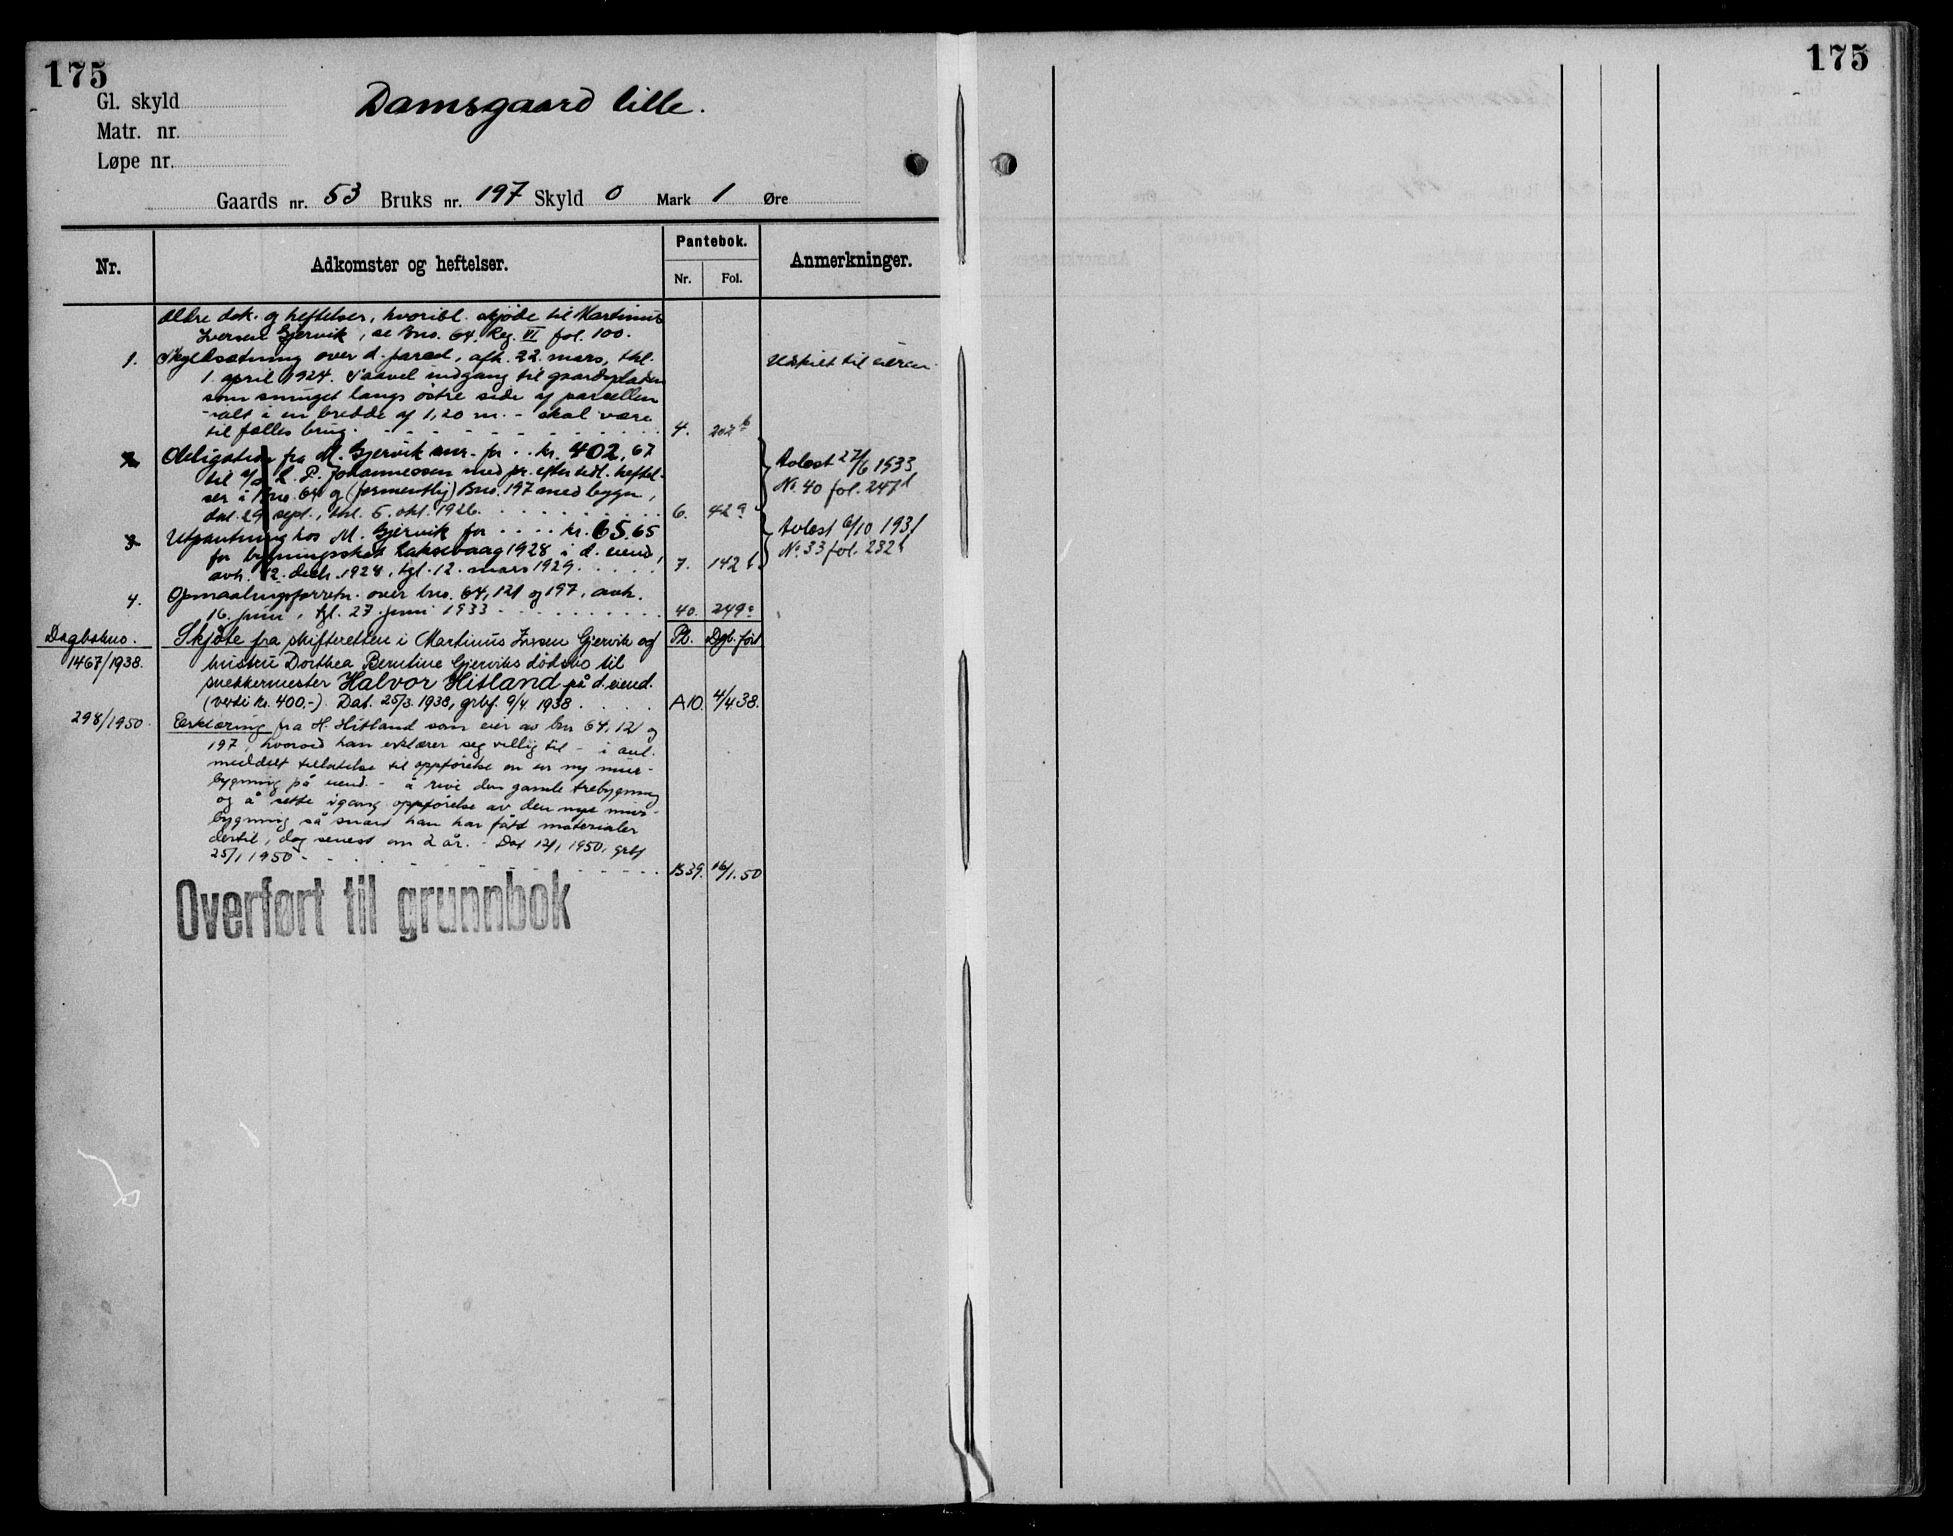 175
175
Gl. skyld
Damsgaard lille.
Matr. nr.
Løpe nr.
Gaards nr. 53 Bruks nr. 197 Skyld 0 Mark 1 Øre
Nr.
Adkomster og heftelser.
Pantebok.
Nr. Fol.
Anmerkninger.
Ældre dok. og heftelser, hvoribl. skjøde til Martinus
Iversen Gjervik, se Bno. 64. Reg. VI fol. 100.
1. Skyldsætning over d. parcel, afh. 22. mars, thl. Utskilt til eieren
1. april 1924. Saavel indgang til gaardspladsen
som smuget langs østre side af parcellen
- alt i en bredde af 1,20 m. - skal være
til fælles brug. 4. 202 b
2. Obligation fra M. Gjervik snr. for .. kr. 402,67
til a/s L. P. Johannessen med pr. efter tidl. heftel-
ser i Bno. 64 og (formentlig) Bno. 197 med bygn,
dat. 29 sept., thl. 5. okt. 1926. 6. 42 a
Avlest 27/6 1933
No. 40 fol. 247 b
3. Utpantning hos M. Gjervik for .... kr. 65.65
for bygningsskat Laksevaag 1928 i d. eiend,
avh. 12. decb. 1928, tgl. 12. mars 1929. 7. 142 b
Avlest 6/10 1931
No. 33 fol. 232 b
4. Opmaalingsforretn. over bno. 64, 121 og 197, avh.
16. juni, tgl. 27. juni 1933 40. 249 a
Dagboksno. Skjøte fra skifteretten i Martinus Iversen Gjervik og Pb. Dgb. ført
1467/1938. hustru Dorthea Berntine Gjerviks dødsbo til
snekkermester Halvor Hitland på d. eiend.
(verdi kr. 400.-) Dat. 25/3 1938, grbf. 9/4 1938. A10. 4/4 38.
298/1950. Erklæring fra H. Hitland som eier av bnr 64, 121 og
197, hvorved han erklærer seg villig til - i anl.
meddelt tillatelse til oppførelse en ny mur-
bygning på eiend. - å rive den gamle trebygning
og å sette igang oppførelse av den nye mur-
bygning så snart han har fått materialer
dertil, dog senest om 2 år. - Dat 12/1 1950, grbf
25/1 1950 - B39. 16/1.50
Overført til grunnbok